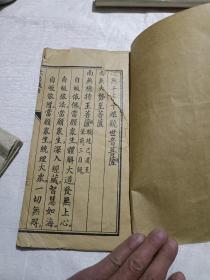 千手千眼觀世音菩薩
南無大勢至菩薩
南無總持王菩薩
自皈依佛當願衆生體解大道發無上心
自皈依法當願衆生深入經藏智慧如海
自皈依僧當願衆生統理大衆一切無礙